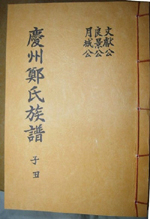 文獻公
良景公
月城公
慶州鄭氏族譜
子丑